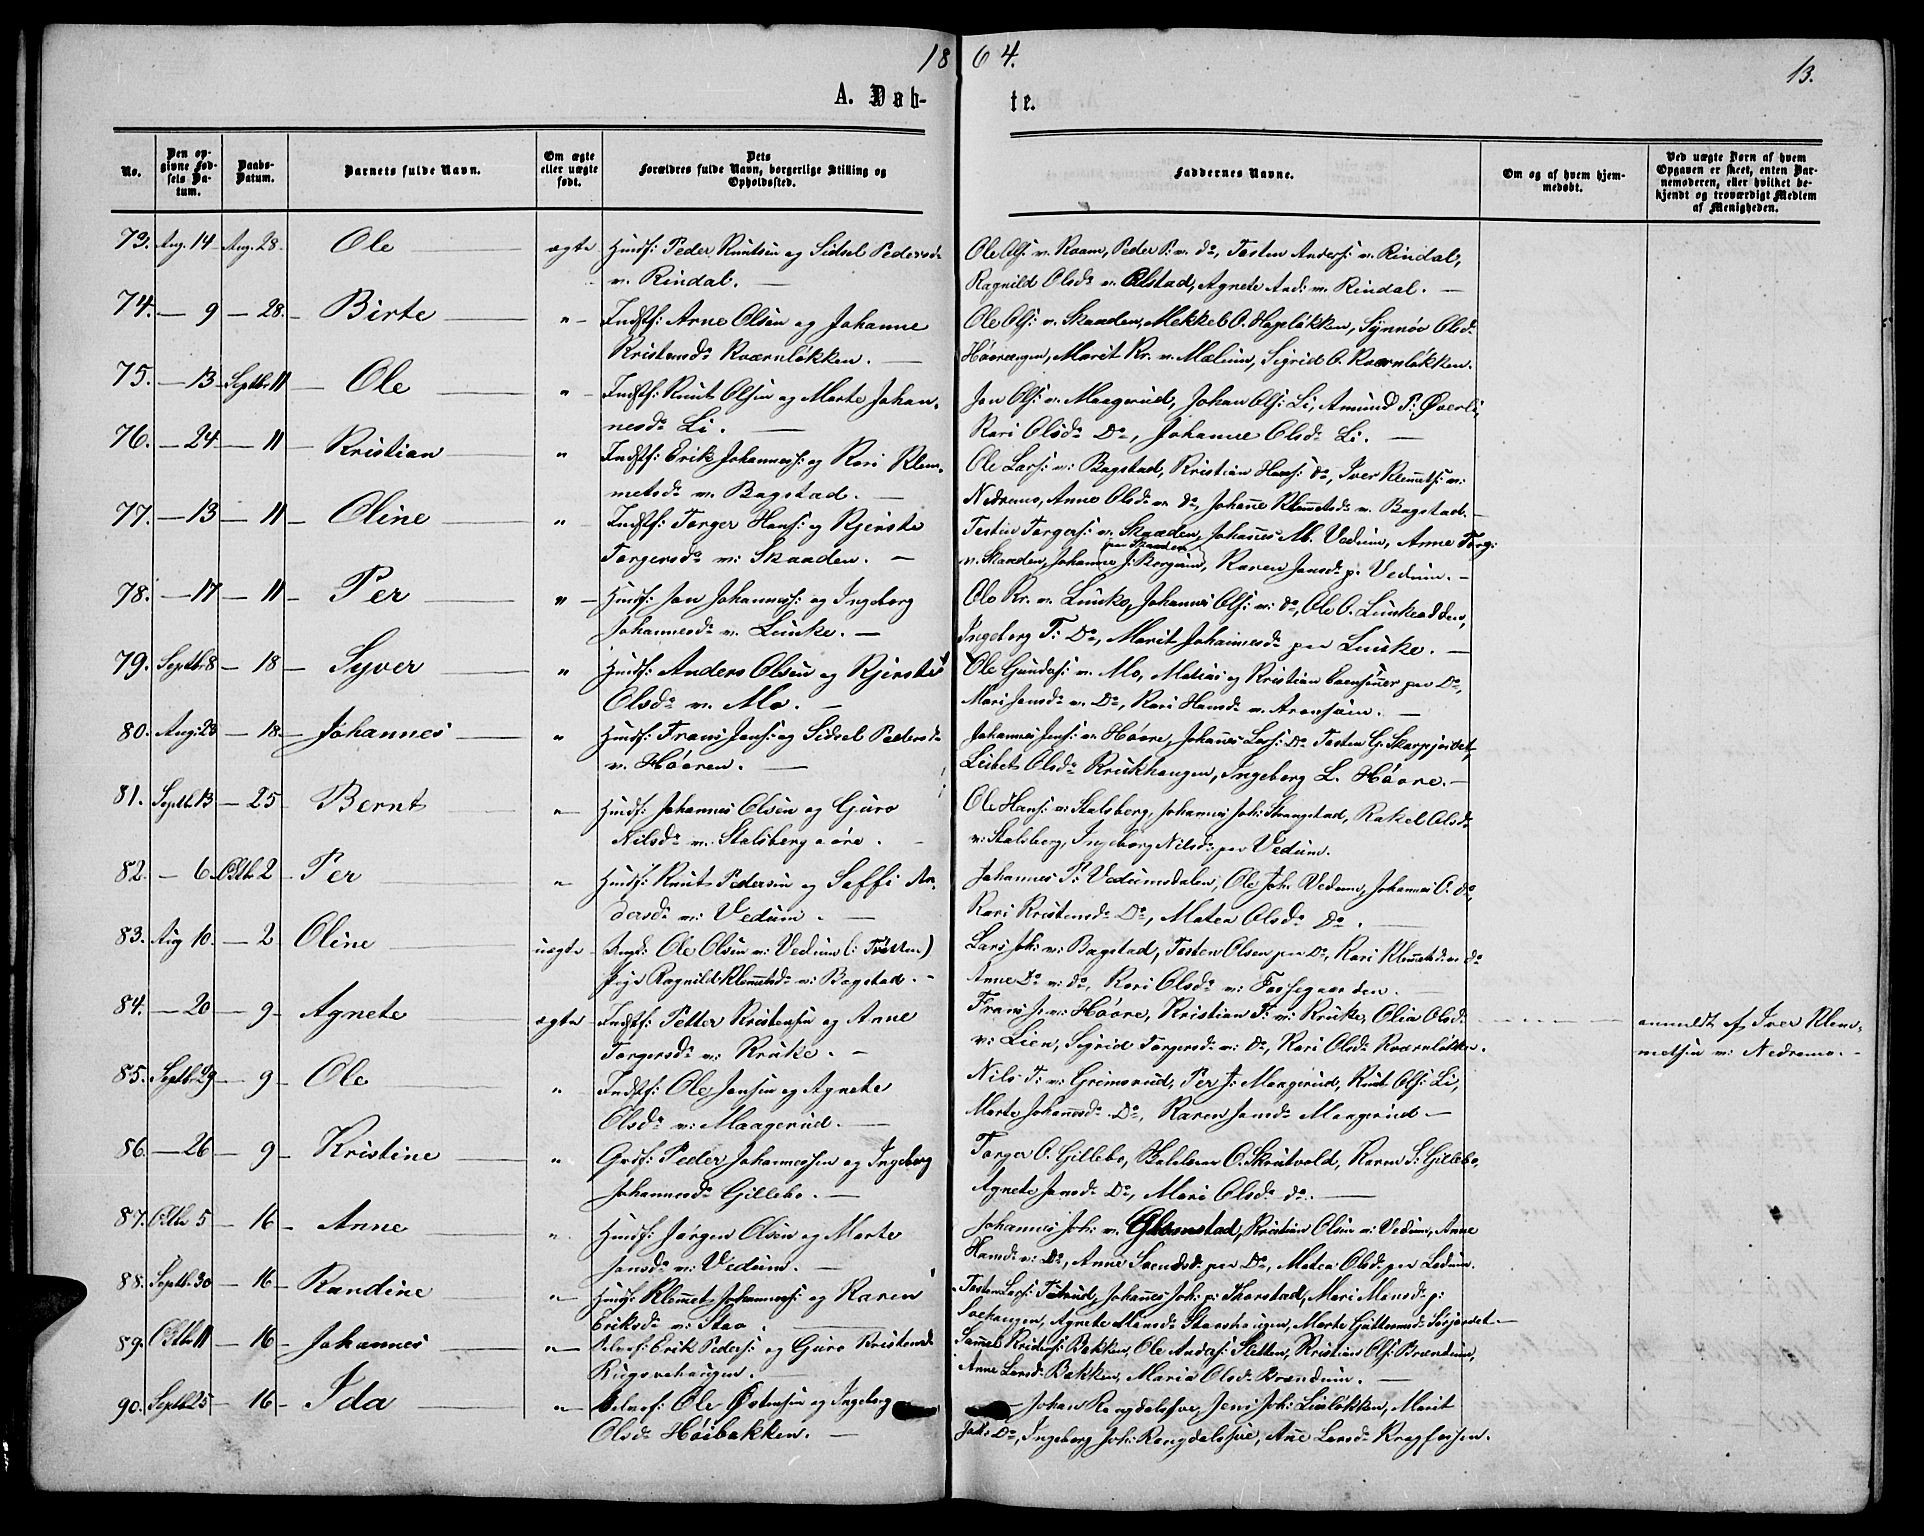 1864.
13.
A. Døbte.
No.
Den opgivne Fødsels Datum.
Daabs-Datum.
Barnets fulde Navn.
Om ægte eller uægte født.
Dets Forældres fulde Navn, borgerlige Stilling og Opholdssted.
Faddernes Navne.
Om og af hvem hjemmedøbt.
Ved uægte Børn af hvem Opgaven er skeet, enten Barnemoderen, eller hvilket bekjendt og troværdigt Medlem af Menigheden.
73. Aug. 14 Aug. 28. Ole ægte Huusf: Peder Knutsen og Sidsel Pedersd:
v. Rindal.
Ole Ols: v. Raam, Peder P. v. do, Tosten Anders: v. Rindal,
Ragnild Olsd: v. Alstad, Agnete And: v. Rindal.
74. — 9 — 28. Birte " Indstf: Arne Olsen og Johanne
Kristensd: Kværnløkken.
Ole Ols: v. Skaaden, Mekkel O. Hageløkken, Synnøv Olsd:
Marit Kr. v. Mælum, Sigrid O. Kværnløkken.
75. — 13 Septbr 11 Ole " Indstf: Knut Olsen og Marte Johan-
nesd: Li.
Jon Ols: v. Maagerud, Johan Ols: Li, Amund P: Øverli,
Kari Olsd: Do, Johanne Olsd: Li.
76. — 24 — 11 Kristian " Indstf: Erik Johanness: og Kari Klem-
metsd: v. Bagstad.
Ole Lars: v: Bagstad, Kristian Hans: do, Iver Klemmets: v:
Nedremo, Anne Olsd: v. do, Johanne Klemmetsd: v. Bagstad.
77. — 13 — 11 Oline " Indstf: Torger Hans: og Kjersti
Torgersd: v: Skaaden.
Tosten Torgers: v. Skaaden, Johannes M. Vedum, Anne Torg:
v. Skaaden, Johanne J: Borgum, Karen Jonsd: p. Vedum.
78. — 17 — 11 Per " Huusf: Jon Johanness: og Ingeborg
Johannesd: v. Lunke.
Ole Kr. v. Lunke, Johannes Ols: v: do, Ole O. Lunkeødden,
Ingeborg T: Do, Marit Johannesd: paa Lunke.
79. Septbr 8 — 18 Syver " Huusf: Anders Olsen og Kjersti
Olsd: v. Mo.
Ole Gundes: v. Mo, Matias og Kristian Evensønner paa Do,
Mari Jonsd: v. Do, Kari Hansd: v.
80. Aug: 23 — 18. Johannes " Huusf: Frans Jens: og Sidsel Pedersd:
v. Høoren.
Johannes Jens: v. Høore, Johannes Lars: Do Tosten G. Skarpjordet,
Lisbet Olsd: Krukhaugen, Ingeborg L. Høore.
81. Septb. 13 — 25 Bernt " Huusf: Johannes Olsen og Guro
Nilsd: v. Stalsberg øvre.
Ole Hans: v: Stalsberg, Johannes Joh: Strangstad, Rakel Olsd:
v: Stalsberg, Ingeborg Nilsd: paa Vedum.
82. — 6 Octbr 2 Per " Huusf: Knut Pedersen og Seffi An-
dersd: v: Vedum.
Johannes P: Vedumsdalen, Ole Joh: Vedum, Johannes O. do,
Kari Kristensd: Do, Matea Olsd: Do.
83. Aug 10. — 2 Oline uægte Ungk: Ole Olsen v: Vedum (: Tvetten)
Pige Ragnild Klemmetsd: v: Bagstad.
Lars Joh: v: Bagstad, Tosten Olsen paa Do, Kari Klemmetsd: v. do
Anne Do v: do, Kari Olsd: v: Fossegaarden.
84. — 20 — 9 Agnete ægte Indstf: Petter Kristensen og Anne
Torgersd: v: Kruke.
Frans J. v: Høore, Kristian T: v: Kruke, Olia Olsd:
v: Lien, Sigrid Torgersd: v: Do, Kari Olsd: Kværnløkken.
anmeldt af Iver Klem-
metsen v: Nedremo.
85. Septbr 29 — 9 Ole " Indstf: Ole Jonsen og Agnete
Olsd: v: Maagerud.
Nils T: v: Grimsrud, Per J: Maagerud, Knut Ols: Li,
Marte Johannsd: Do, Karen Jonsd: Maagerud
86. — 26 — 9 Kristine " Grdf: Peder Johannessen og Ingeborg
Johannesd: Gillebo.
Torger O. Gillebo, Baltsar O. Skrutvold, Karen S: Gillebo,
Agnete Jonsd: Do, Mari Olsd: do.
87. Octbr 5 — 16 Anne " Huusf: Jørgen Olsen og Marte
Jonsd: v: Vedum.
Johannes Joh: v. Glomstad, Kristian Olsen v: Vedum, Anne
Hansd: v: Do, Anne Svendsd: paa Do, Matea Olsd: paa Vedum.
88. Septb. 30 — 16 Randine " Huusf: Klemmet Johanness: og Karen
Eriksd: v: Staa.
Tosten Lars: Tutrud, Johannes Joh: p: Skorstad, Mari Monsd: p:
Agnete Monsd: Staashaugen, Marte Guttormsd:
89. Octbr 11 — 16 Johannes " Selvef: Erik Peders: og Guro Kristensd:
Rugsvehaugen.
Samuel Kristens: Bakken, Ole Anders: Sletten, Kristian Ols: Brændum,
Anne Larsd: Bakken, Maria Olsd: Brændum.
90. Septb 25 — 16 Ida " Selvef: Ole Østensen og Ingeborg
Olsd: Høibakken.
Johan Rangdalssve, Jens Joh: Linløkken, Marit
Joh: Do, Ingeborg Joh: Rangdalssve, Ane Larsd: Kragfossen.